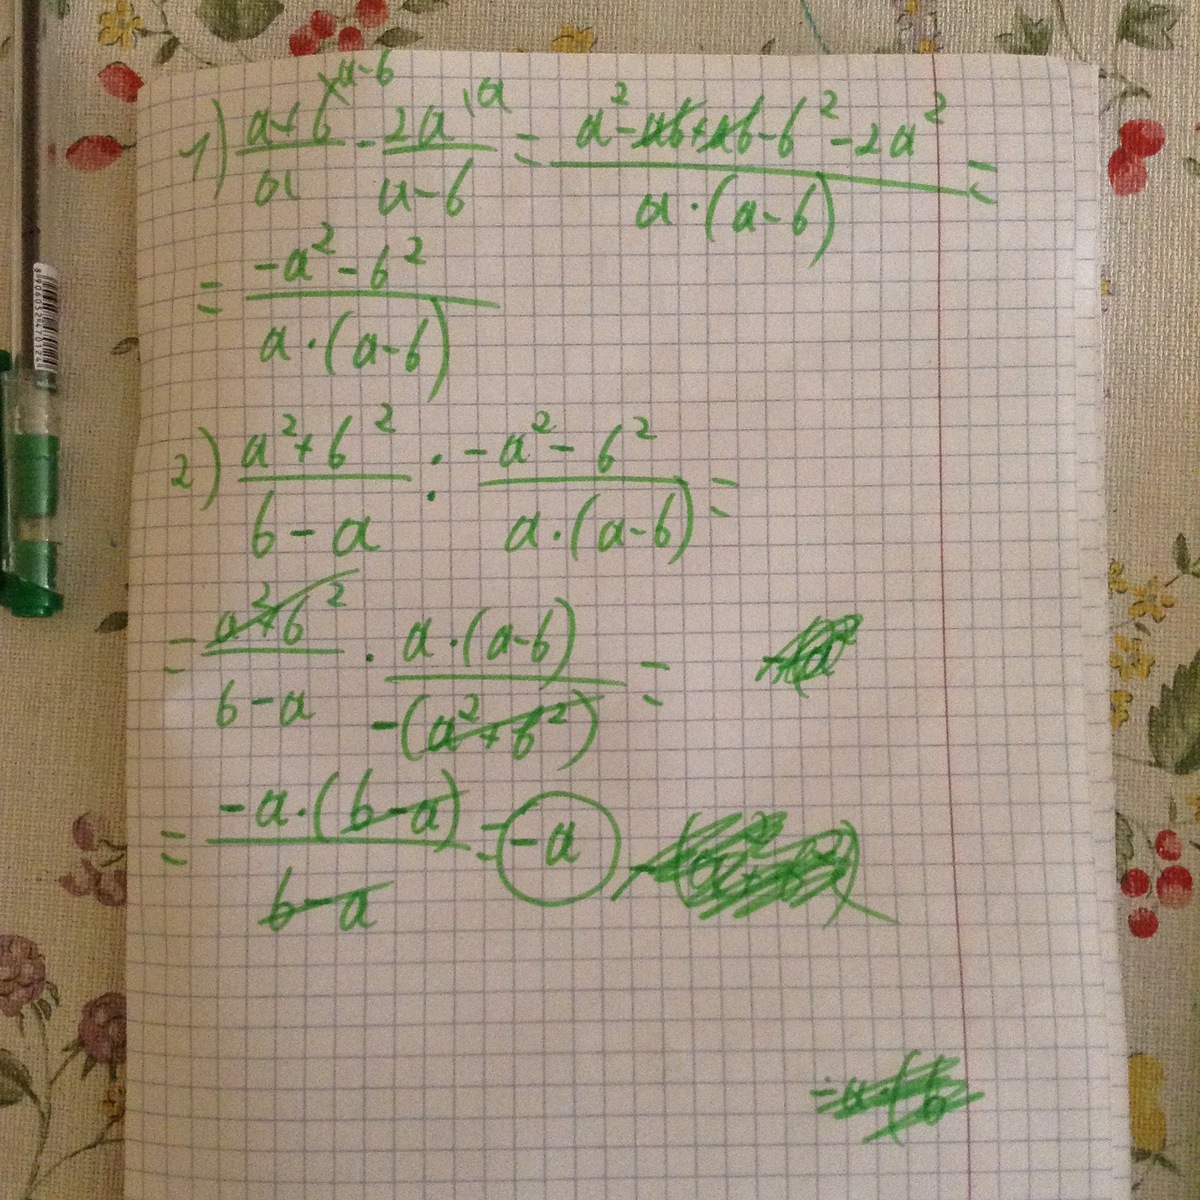 1) (a+b)/a \ a-b - 2a/(a-b) \ a = (a²-ab+ab-b²-2a²)/(a·(a-b)) =
= (-a²-b²)/(a·(a-b))
2) (a²+b²)/(b-a) : (-a²-b²)/(a·(a-b)) =
= (a²+b²)/(b-a) · (a·(a-b))/(-(a²+b²)) =
= (-a·(b-a))/(b-a) = -a